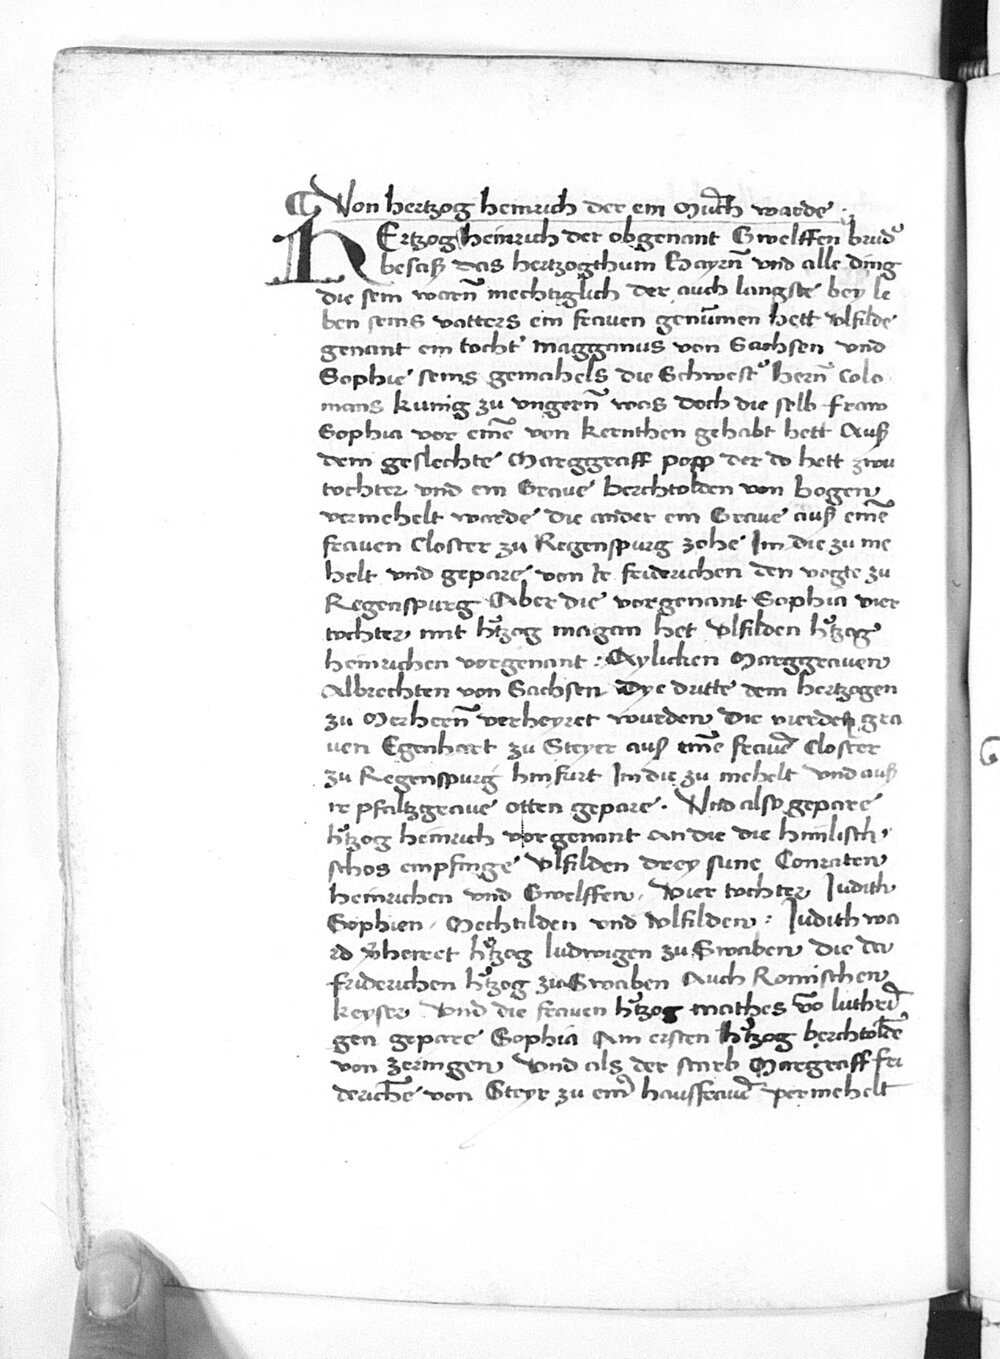 ¶ Von hertzog heinrich der ein Münch warde
HErtzog heinrich der obgenant Gwelffen brud
besaß das hertzogthum Bayrn̄ vnd alle ding
die sein warn̄ mechtiglich der auch langste bey le
ben seins vatters ein frauen genūmen hett vlfilde
genant ein tocht magganus von Sachsen vnd
Sophie seins gemahels die Schwest hern̄ Colo
mans kunig zu vngern̄ was doch die selb fraw
Sophia vor einē von kernthen gehabt hett Auß
dem geslechte Marggraff popp der do hett zwu
tochter vnd ein Graue berchtolden von bogen
vermehelt warde die ander ein Graue auß einē
frauen Closter zu Regenspurg zohe Im die zu me
helt vnd gepare von ir friderichen den vogte zu
Regenspurg Aber die vorgenant Sophia vier
tochter mit htzog magan het vlfilden htzog
heinrichen vorgenant : Aylicken Marggrauen
Albrechten von Sachsen Dye dritte dem hertzogen
zu Merhern̄ verheyret wurden die vierden gra
uen Egenhart zu Steyer auß einē frauē Closter
zu Regenspurg hinfurt Im die zu mehelt vnd auß
ir pfaltzgraue otten gepare . Vnd also gepare
htzog heinrich vorgenant an die die himlisch
schos empfinge vlfilden drey sune Conraten
heinrichen vnd Gwelffen . Vier tochter Judith
Sophien . Mechtilden vnd vlfilden : Judith wa
rd vheiret htzog ludwigen zu Swaben die da
friderichen htzog zu Swaben Auch Romischen
keyser . Vnd die frauen htzog mathes vō luthri
gen gepare Sophia Am ersten htzog berchtoldē
von zeringen Vnd als der starb Margraff fri
derichē von Steyr zu eine haussfrauē vermehelt